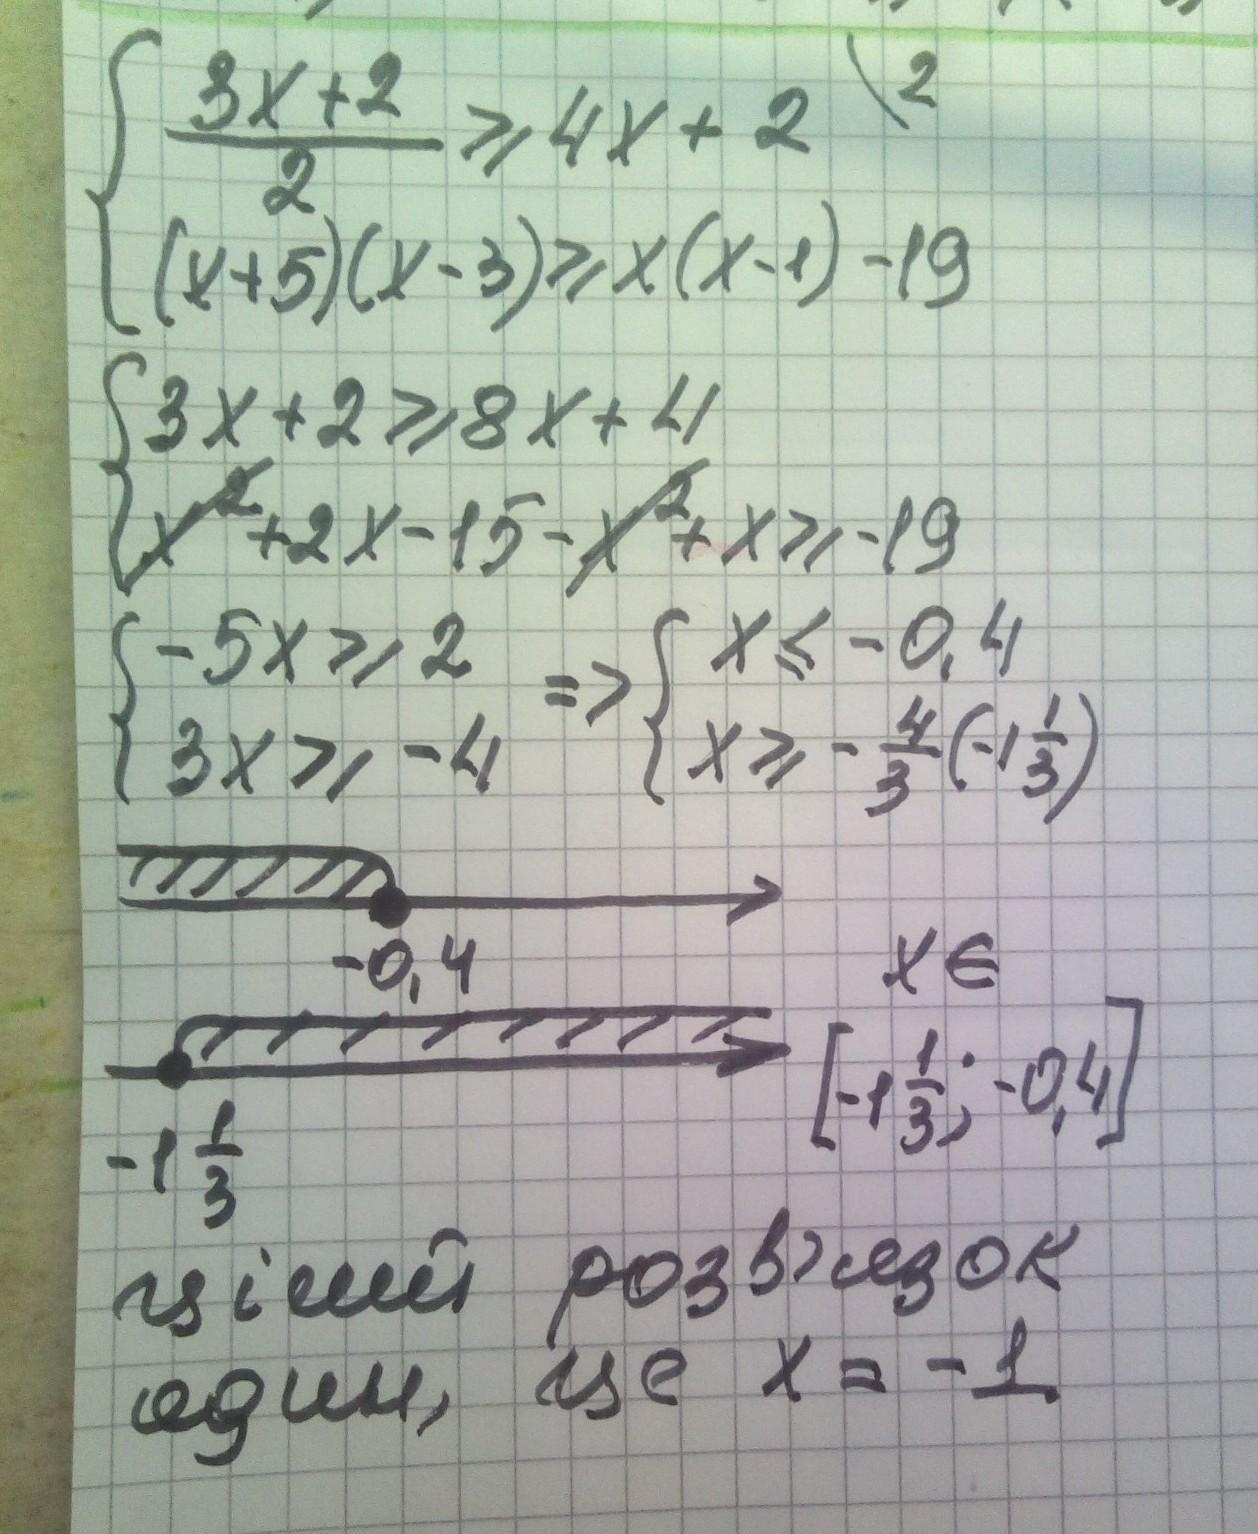 { (3x+2)/2 ⩾ 4x+2 \2
(x+5)(x-3) ⩾ x(x-1) -19
{ 3x+2 ⩾ 8x+4
x²+2x-15-x²+x ⩾ -19
{ -5x ⩾ 2 => { x ⩽ -0,4
3x ⩾ -4 x ⩾ -4/3 (-1 1/3)
-0,4
x ∈
[-1 1/3; -0,4]
-1 1/3
цілий розв'язок
один, це x = -1.